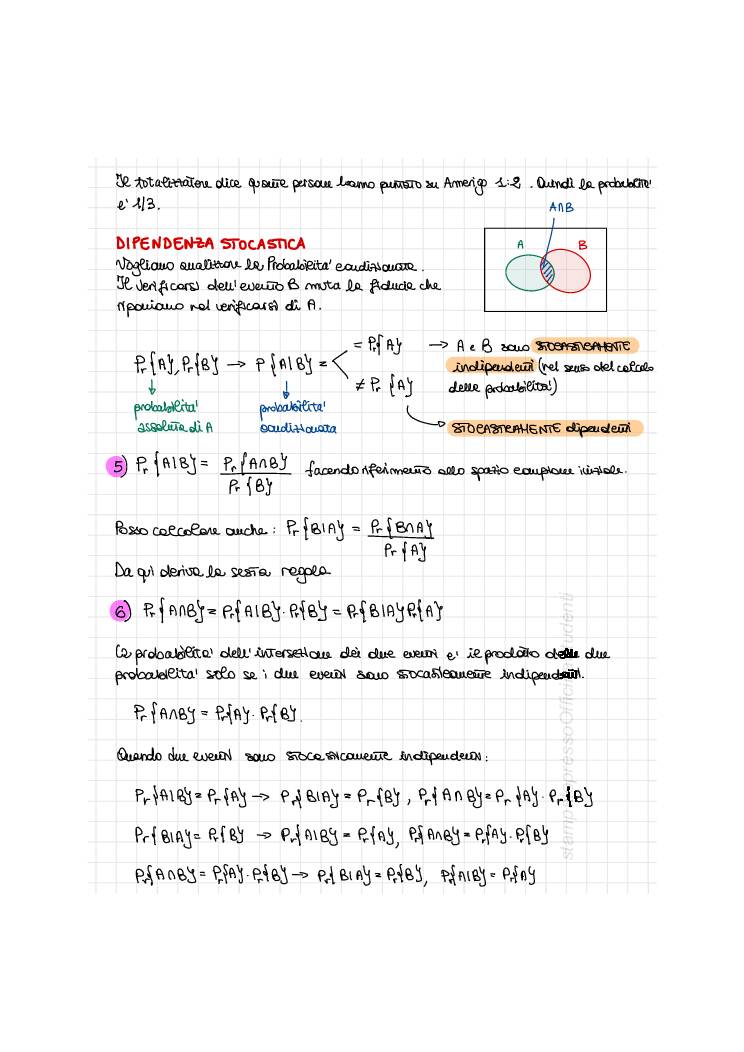 Il totalizzatore dice quante persone hanno puntato su Amerigo 1:2 . Quindi la probabilita'
e' 1/3.
A∩B
DIPENDENZA STOCASTICA
A B
Vogliamo analizzare la Probabilita' condizionata.
Il verificarsi dell'evento B muta la fiducia che
riponiamo nel verificarsi di A.
= Pr{A} → A e B sono STOCASTICAMENTE
Pr{A}, Pr{B} → P{A|B} = indipendenti (nel senso del calcolo
≠ Pr {A} delle probabilita')
probabilita' probabilita'
assoluta di A condizionata STOCASTICAMENTE dipendenti
5) Pr{A|B} = Pr{A∩B} / Pr{B} facendo riferimento allo spazio campione iniziale.
Posso calcolare anche: Pr{B|A} = Pr{B∩A} / Pr{A}
Da qui deriva la sesta regola
6) Pr{A∩B} = Pr{A|B} · Pr{B} = Pr{B|A} Pr{A}
La probabilita' dell'intersezione dei due eventi e' il prodotto delle due
probabilita' solo se i due eventi sono stocasticamente indipendenti.
Pr{A∩B} = Pr{A} · Pr{B}.
Quando due eventi sono stocasticamente indipendenti:
Pr{A|B} = Pr{A} → Pr{B|A} = Pr{B}, Pr{A∩B} = Pr{A} · Pr{B}
Pr{B|A} = Pr{B} → Pr{A|B} = Pr{A}, Pr{A∩B} = Pr{A} · Pr{B}
Pr{A∩B} = Pr{A} · Pr{B} → Pr{B|A} = Pr{B}, Pr{A|B} = Pr{A}